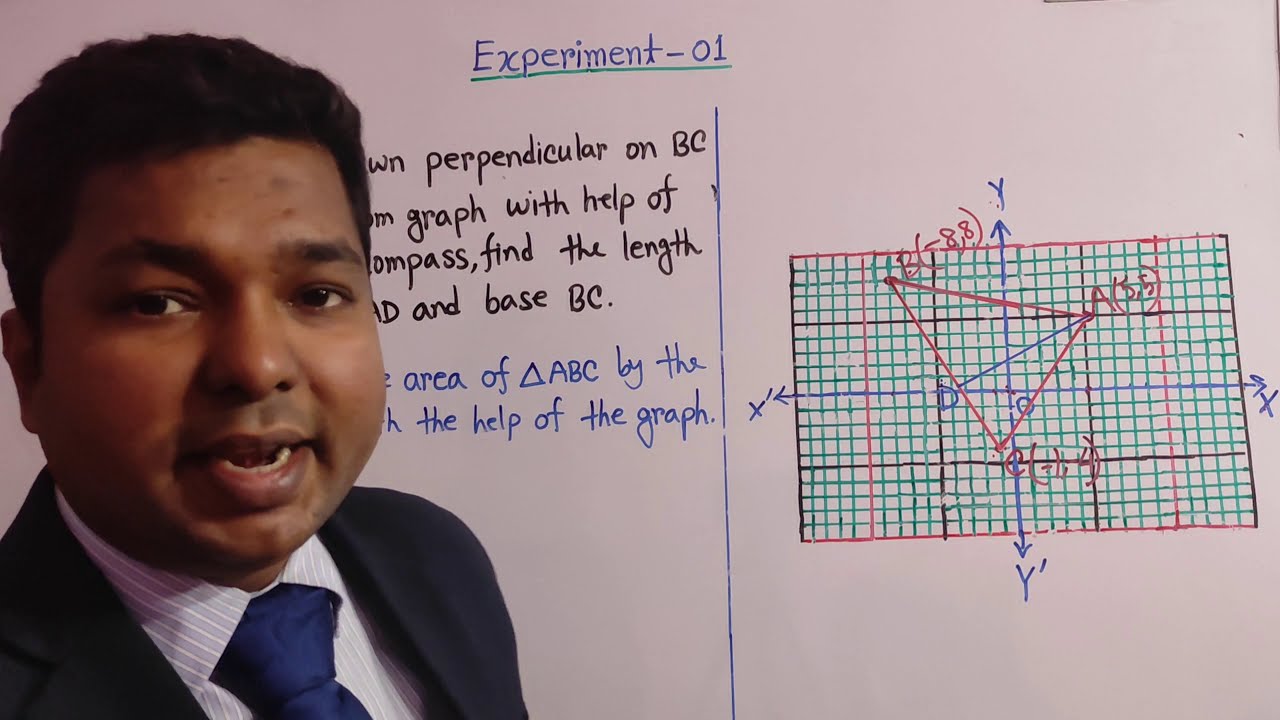 Experiment-01
wn perpendicular on BC
om graph with help of
ompass, find the length
AD and base BC.
e area of △ABC by the
h the help of the graph.
Y
B(-8,8)
A(5,5)
X' D O X
C(-1,-4)
Y'